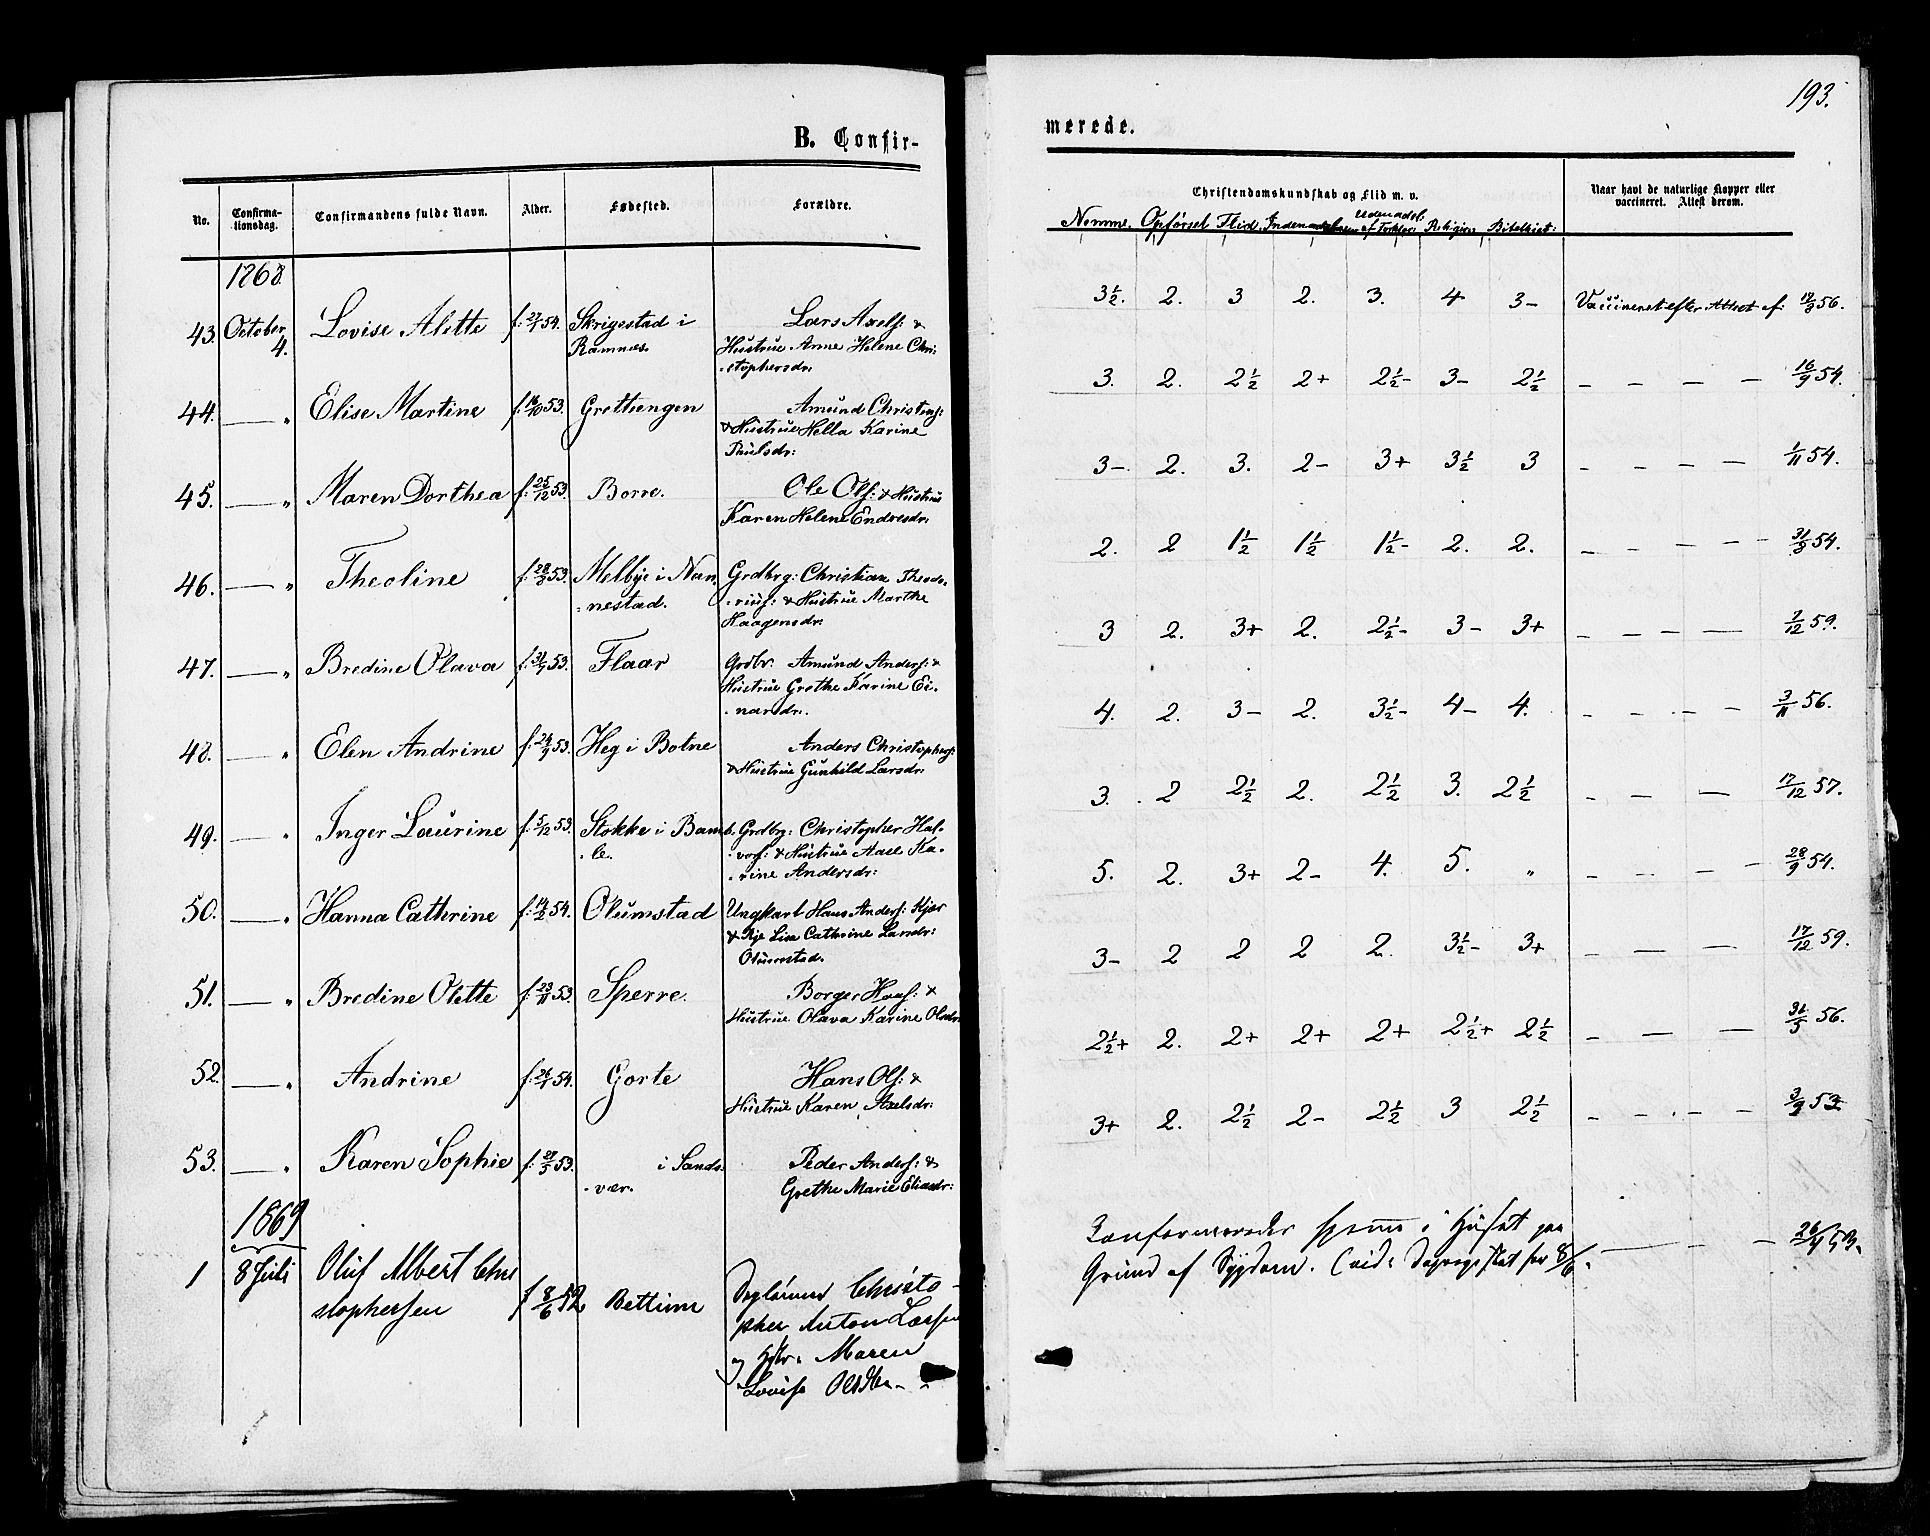 193.
B. Confir-
merede.
No.
Confirma-
tionsdag.
Confirmandens fulde Navn.
Alder.
Fødested.
Forældre.
Christendomskundskab og Flid m. v.
Naar havt de naturlige Kopper eller
vaccineret. Attest derom.
Nemme. Opførsel Flid. Religion Bibelhist:
1868.
43. October 4. Lovise Alette f: 27/1 54. Skrigestad i
Ramnæs.
Lars Axels: &
Hustrue Anne Helene Chri-
-stophersdr:
3½. 2. 3 2. 3. 4 3- Vaccineret efter Attest af: 56.
44. — „ Elise Martine f: 16/10 53. Grettengen
Amund Christens:
& Hustrue Hella Karine
Paulsdr:
3. 2. 2½ 2+ 2½- 3- 2½ — — — — 16/9 54.
45. — „ Maren Dorthea f: 25/12 53. Borre.
Ole Ols: & Hustrue
Karen Helene Endresdr:
3-. 2. 3. 2- 3+ 3½ 3 — — — — 1/11 54.
46. — „ Theoline f: 28/8 53. Melbye i Nan-
-nestad.
Grdbrg: Christian Theodo-
-rius: & Hustrue Marthe
Haagensdr:
2. 2 1½ 1½ 1½- 2. 2. — — — — 54.
47. — „ Bredine Olava f: 53. Flaar
Grdbr. Amund Anders: &
Hustrue Grethe Karine Ei-
-narsdr:
3 2. 3+ 2. 2½- 3- 3+ — — — — 7/12 59.
48. — „ Elen Andrine f: 24/9 53. Heg i Botne
Anders Christophers:
& Hustrue Gunhild Larsdr:
4. 2. 3- 2. 3½- 4- 4. — — — — 3/11 56.
49. — „ Inger Laurine f: 5/12 53. Stokke i Bamb-
-le.
Grdbrg: Christopher Hal-
-vors: & Hustrue Aase Ka-
-rine Andersdr:
3. 2 2½ 2. 2½ 3. 2½ — — — — 17/12 57.
50. — „ Hanna Cathrine f: 14/2 54. Olumstad
Ungkarl Hans Anders: Kjær
& Pige Lise Cathrine Larsdr:
Olumstad.
5. 2. 3+ 2- 4. 5. „ — — — — 28/9 54.
51. — „ Bredine Olette f: 23/11 53. Sperre.
Borger Hans: &
Hustrue Olava Karine Olsdr:
3- 2 2 2 2. 3½- 3+ — — — 17/12 59.
52. — „ Andrine f: 26/1 54. Gorte
Hans Ols: &
Hustrue Karen Axelsdr:
2½+ 2. 2+ 2+ 2+ 2½+ 2½ — — — 31/5 56.
53. — „ Karen Sophie f: 53. i Sands-
-vær.
Peder Anders: &
Grethe Marie Eliasdr:
3+ 2. 2½ 2- 2½ 3 2½ — — — — 3/9 53
1869
1 8 Juli Oluf Albert Chri
stophersen f 8/6 52. Bettum
Christo-
pher Anton Larsen
og Hstr. Maren
Lovise Olsdtr.
Confirmeredes hjemme i Huset paa
Grund af Sygdom. (vide Dagregistret for 8/6. — — — 53.